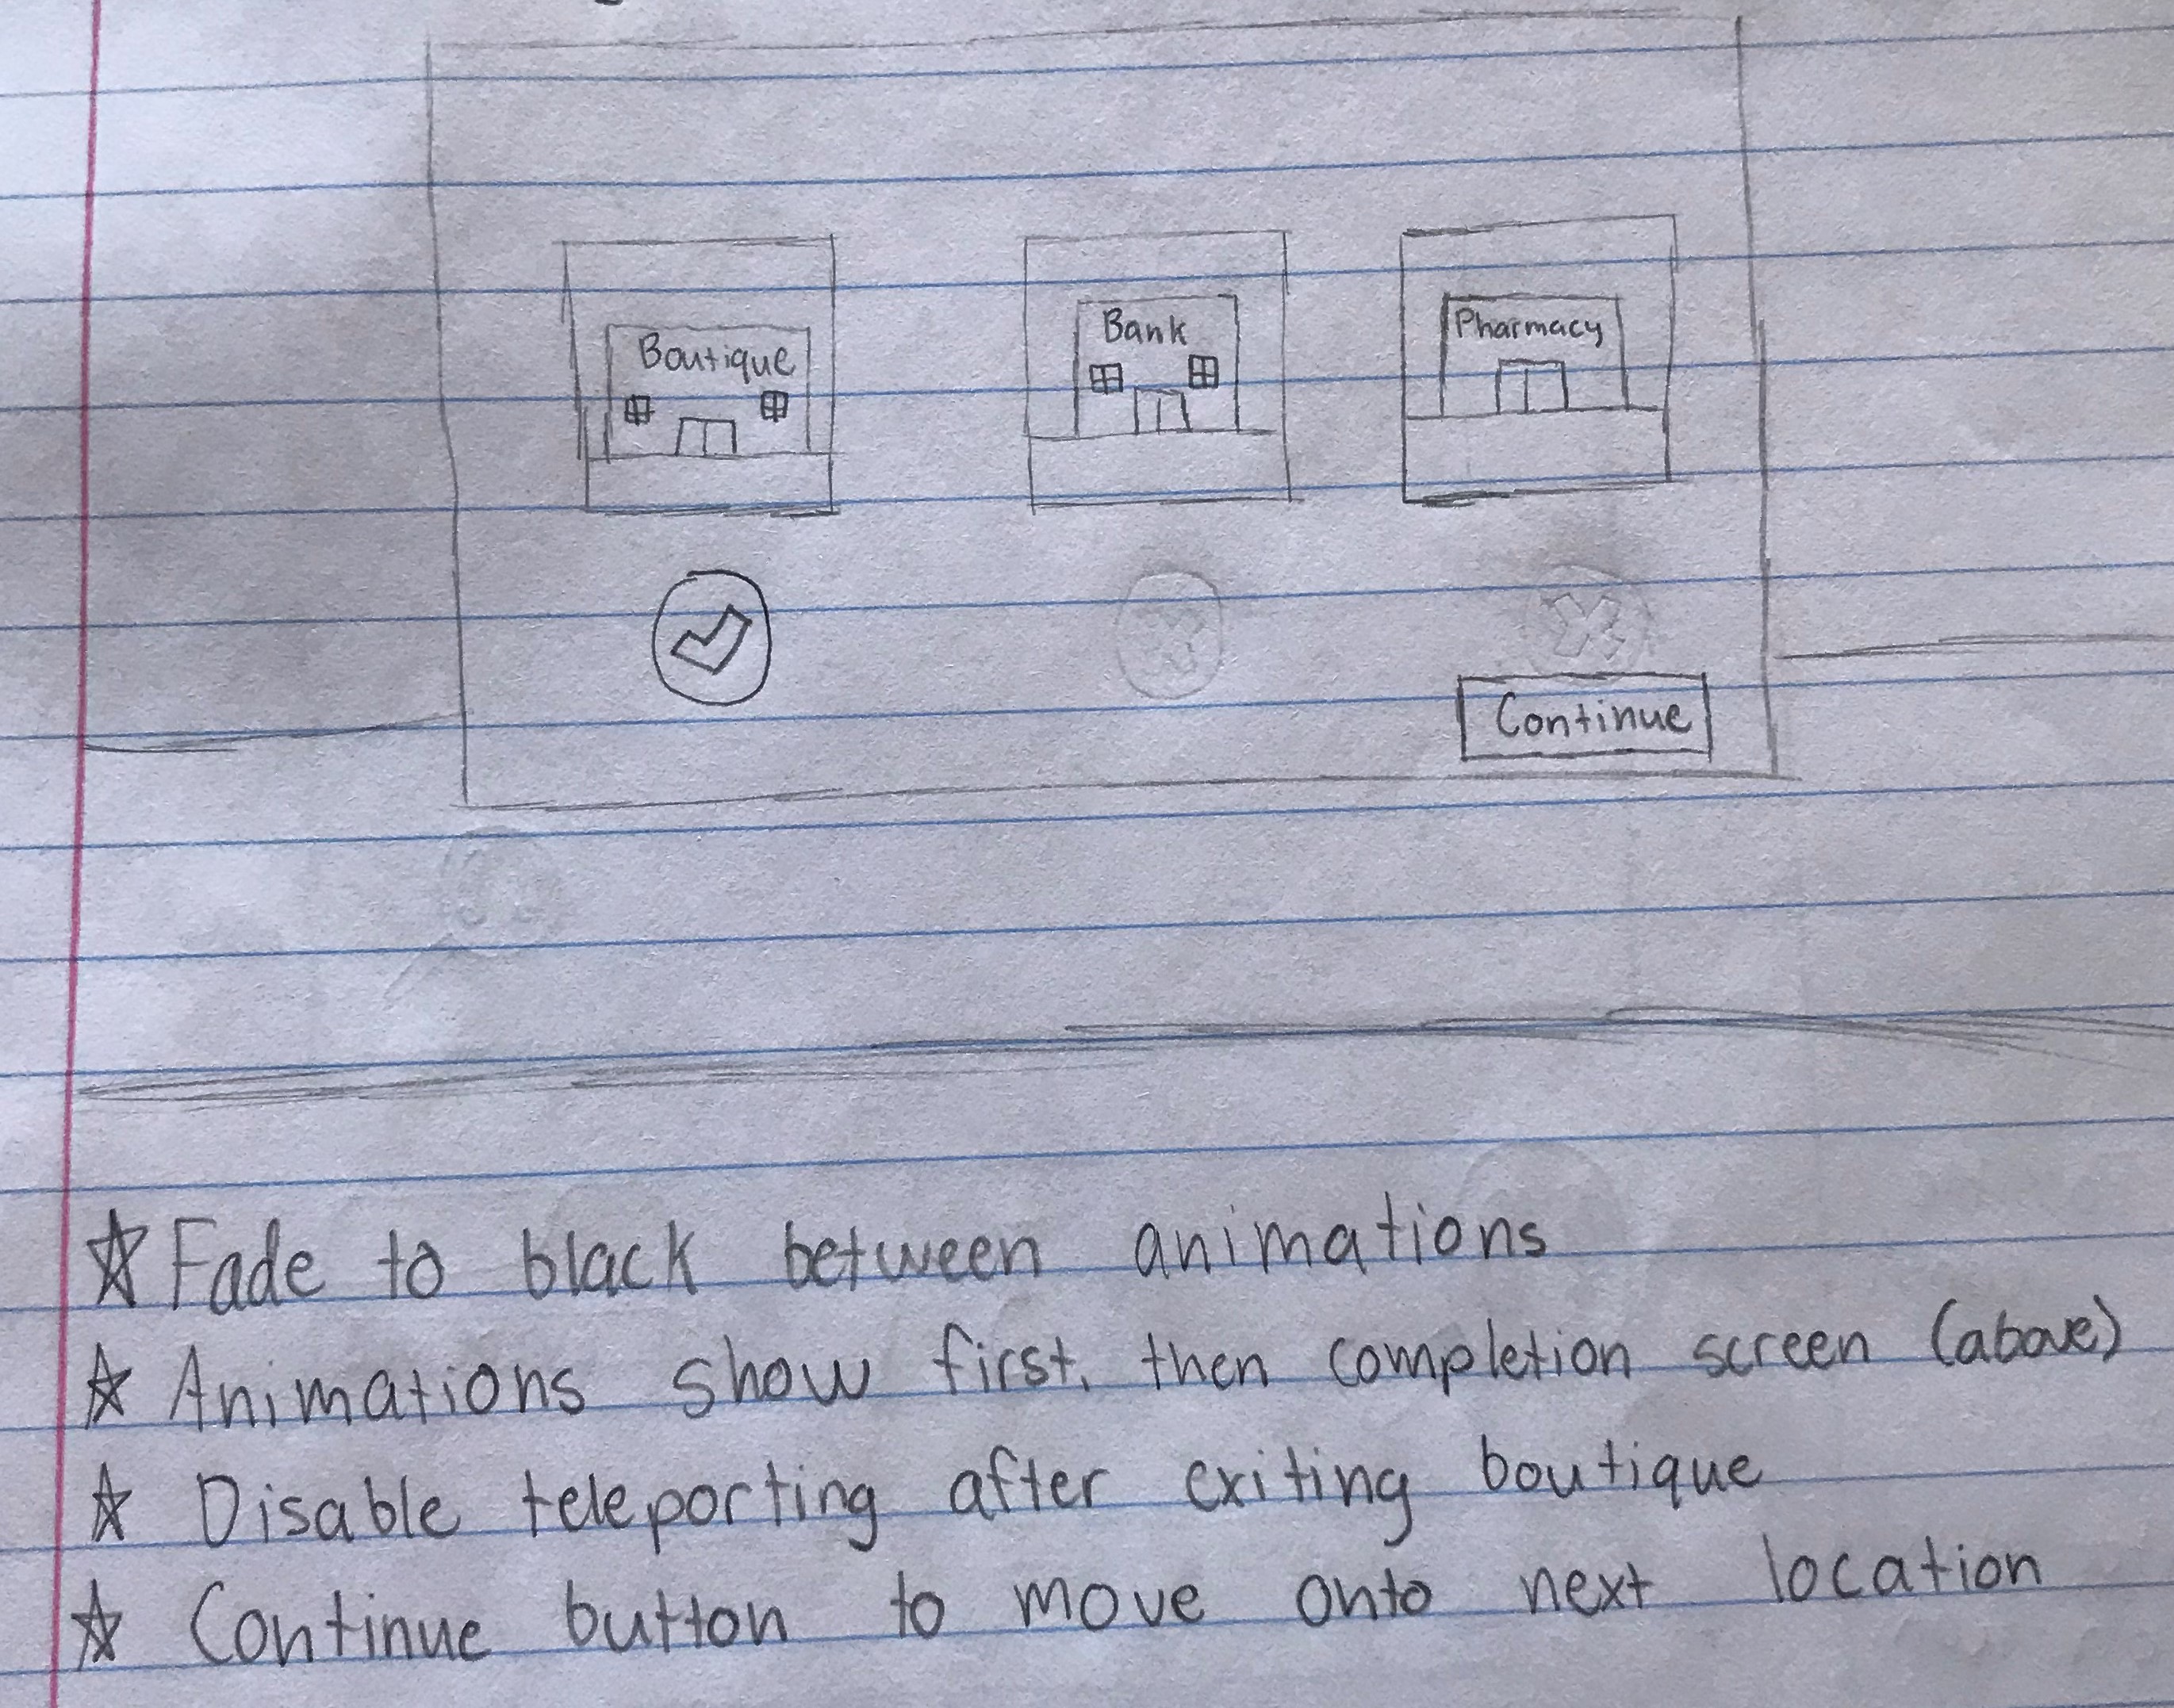 Boutique
Bank
Pharmacy
Continue
☆ Fade to black between animations
☆ Animations show first, then completion screen (above)
☆ Disable teleporting after exiting boutique
☆ Continue button to move onto next location